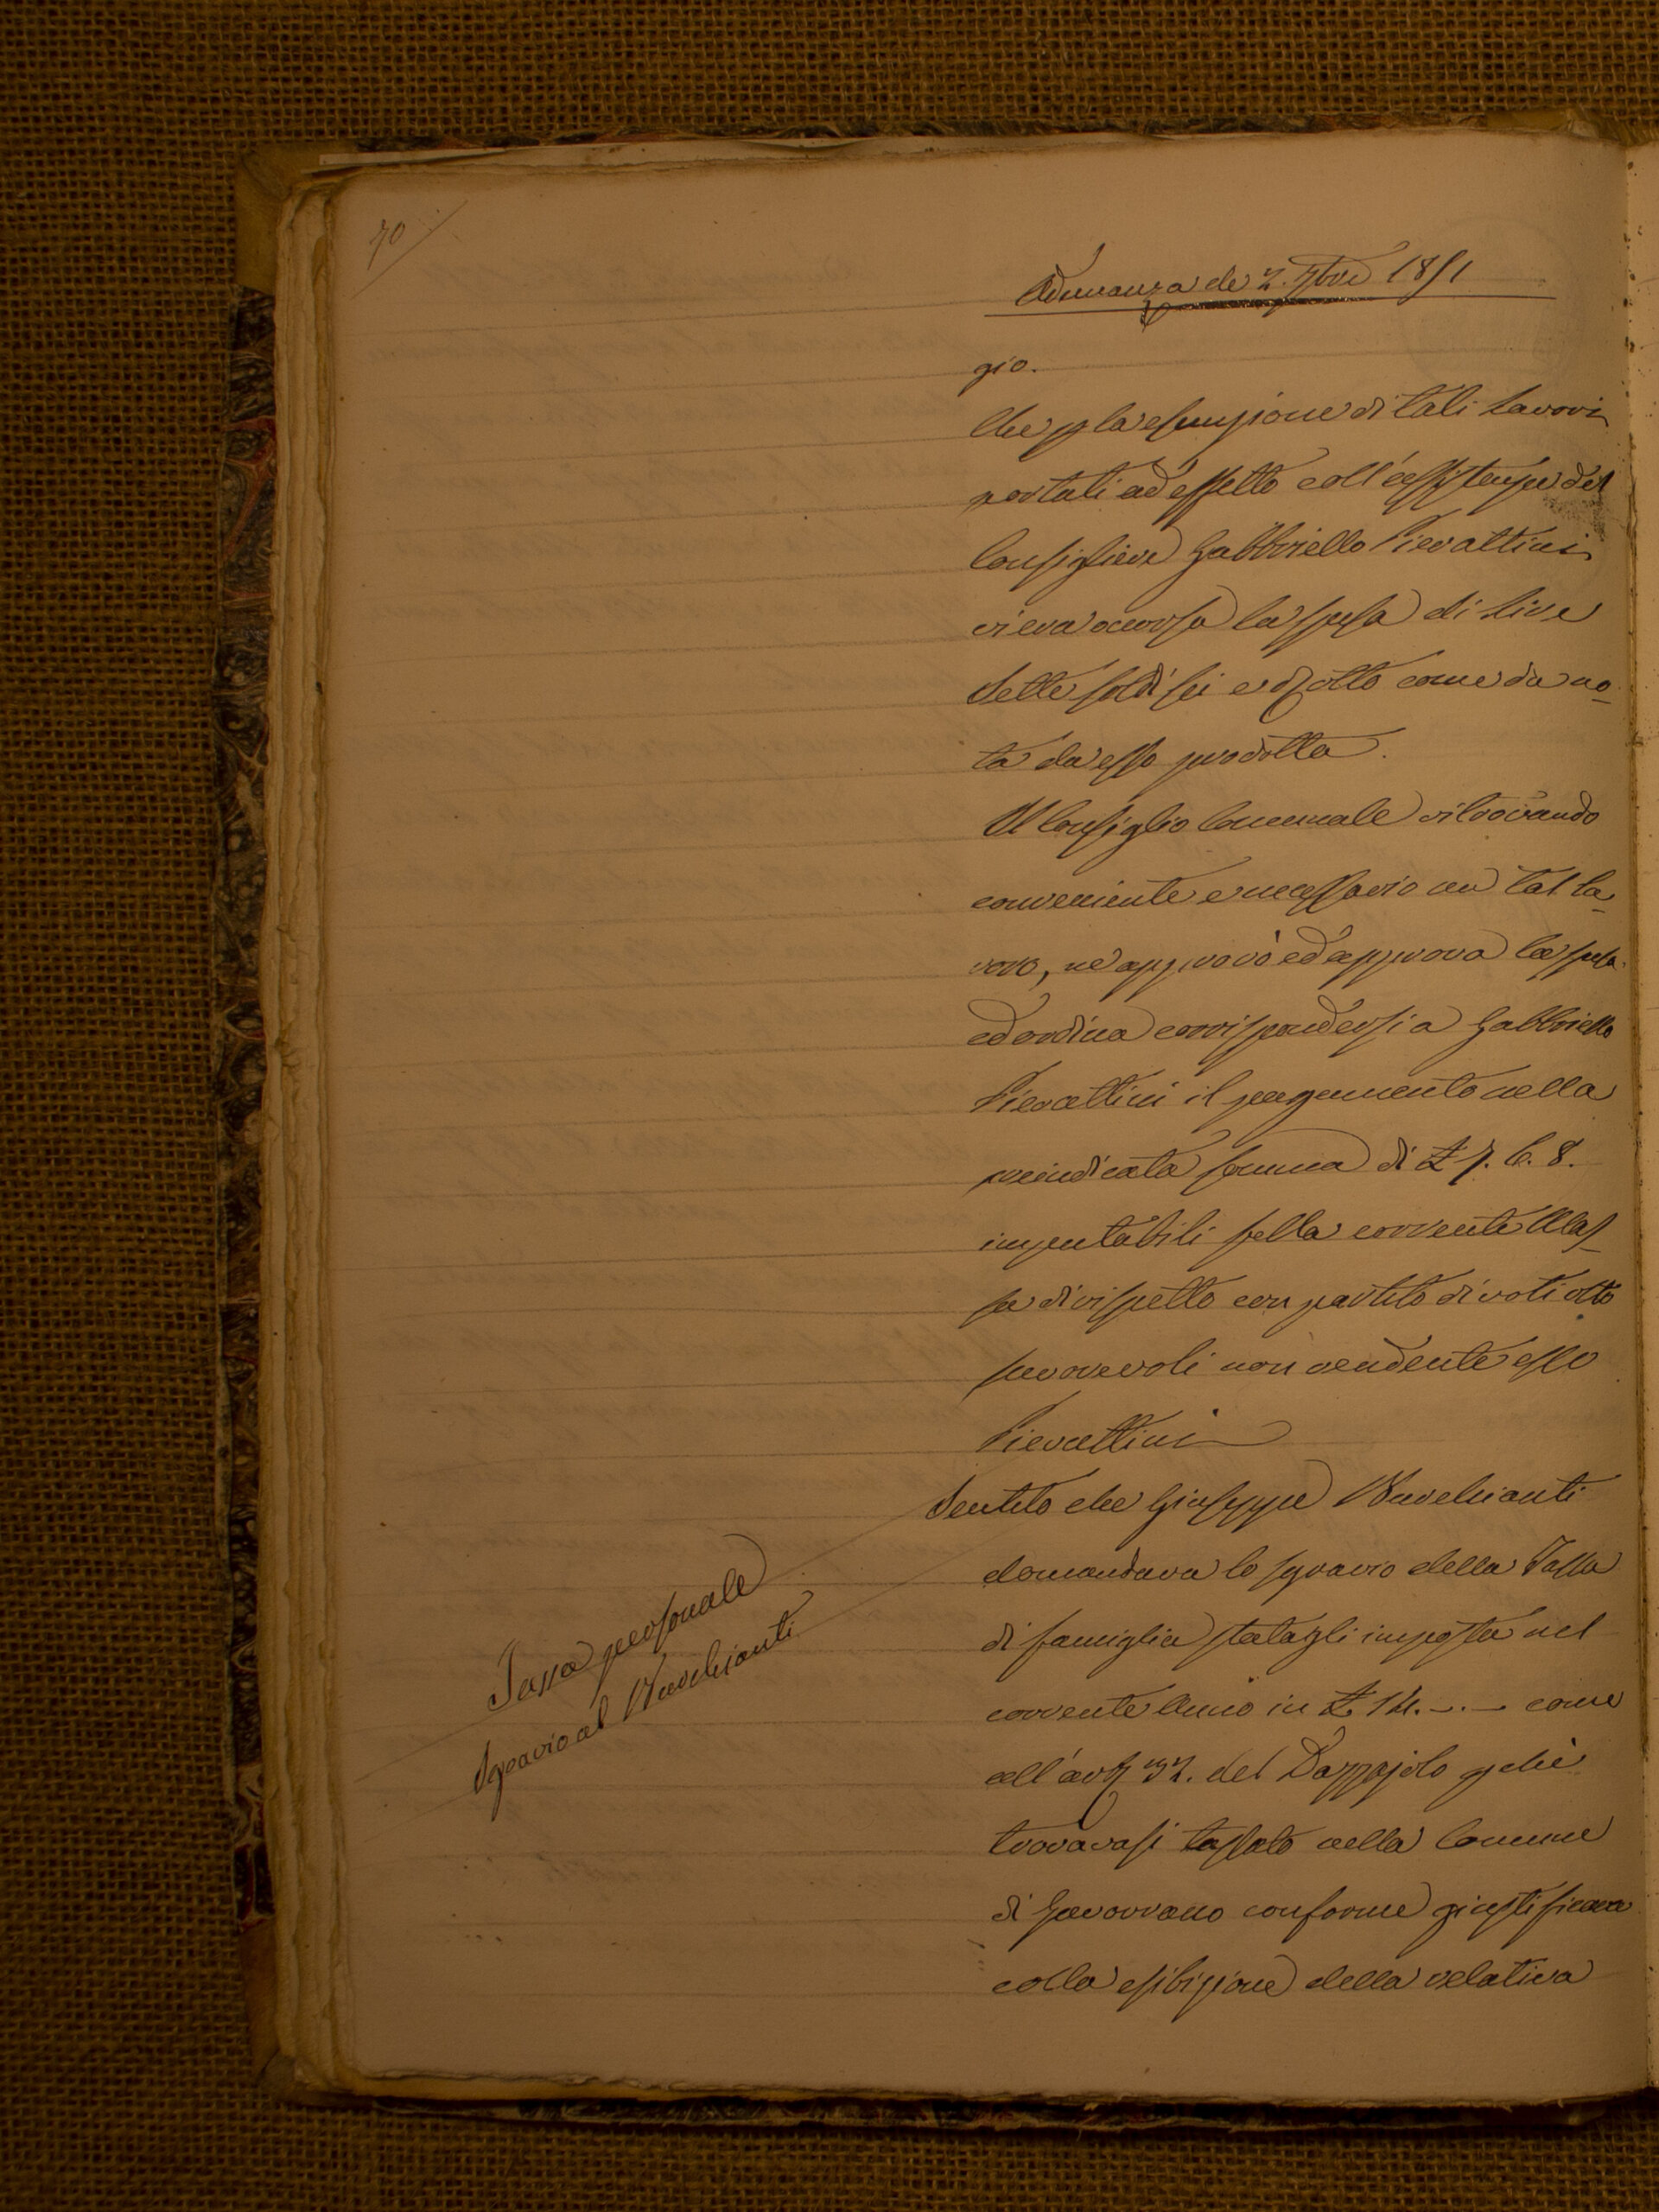 70
Adunanza de 2. 7bre 1851
gio.
Che p la esenzione di tali Lavori
portati ad effetto coll'assistenza del
Consigliere Gabbriello Pierattini
vi era occorsa la spesa di Lire
Sette soldi sei e d. otto come da no_
ta da esso prodotta.
Il Consiglio Comunale ritrovando
conveniente e necessario un tal la_
voro, ne approvò ed approva la spesa
ed ordina corrispondersi a Gabbriello
Pierattini il pagamento nella
preindicata somma di £ 7. 6. 8.
imputabili sulla corrente Mas_
sa di rispetto con partito di voti otto
favorevoli non rendente esso
Pierattini
Sentito che Giuseppe Bucchianti
domandava lo sgravio della Tassa
di famiglia statagli imposta nel
corrente Anno in £ 14. -. - come
all'art. 32. del Dazzajolo pchè
trovavasi tassato nella Comune
di Gavorrano conforme giustificava
colla esibizione della relativa
Tassa personale
Sgravio al Bucchianti